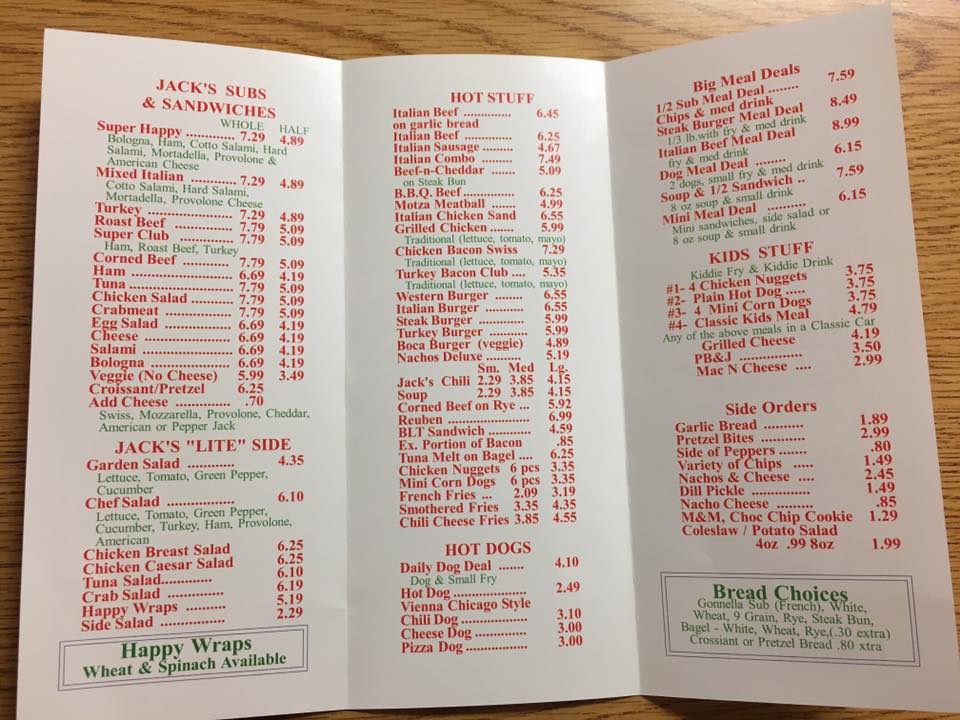 JACK'S SUBS
& SANDWICHES
WHOLE HALF
Super Happy ............. 7.29 4.89
Bologna, Ham, Cotto Salami, Hard
Salami, Mortadella, Provolone &
American Cheese
Mixed Italian ........... 7.29 4.89
Cotto Salami, Hard Salami,
Mortadella, Provolone Cheese
Turkey .................... 7.29 4.89
Roast Beef .............. 7.79 5.09
Super Club .............. 7.79 5.09
Ham, Roast Beef, Turkey
Corned Beef ............ 7.79 5.09
Ham ........................ 6.69 4.19
Tuna ........................ 7.79 5.09
Chicken Salad .......... 7.79 5.09
Crabmeat ................ 7.79 5.09
Egg Salad ................ 6.69 4.19
Cheese ..................... 6.69 4.19
Salami ..................... 6.69 4.19
Bologna ................... 6.69 4.19
Veggie (No Cheese) 5.99 3.49
Croissant/Pretzel 6.25
Add Cheese .............. .70
Swiss, Mozzarella, Provolone, Cheddar,
American or Pepper Jack
JACK'S "LITE" SIDE
Garden Salad ............ 4.35
Lettuce, Tomato, Green Pepper,
Cucumber
Chef Salad ................ 6.10
Lettuce, Tomato, Green Pepper,
Cucumber, Turkey, Ham, Provolone,
American
Chicken Breast Salad 6.25
Chicken Caesar Salad 6.25
Tuna Salad............. 6.10
Crab Salad .............. 6.19
Happy Wraps .......... 5.19
Side Salad ................ 2.29
Happy Wraps
Wheat & Spinach Available
HOT STUFF
Italian Beef .............. 6.45
on garlic bread
Italian Beef .............. 6.25
Italian Sausage ......... 4.67
Italian Combo .......... 7.49
Beef-n-Cheddar ....... 5.09
on Steak Bun
B.B.Q. Beef............... 6.25
Motza Meatball ....... 4.99
Italian Chicken Sand 6.55
Grilled Chicken ....... 5.99
Traditional (lettuce, tomato, mayo)
Chicken Bacon Swiss 7.29
Traditional (lettuce, tomato, mayo)
Turkey Bacon Club .... 5.35
Traditional (lettuce, tomato, mayo)
Western Burger ........ 6.55
Italian Burger ........... 6.55
Steak Burger ............ 5.99
Turkey Burger .......... 5.99
Boca Burger (veggie) 4.89
Nachos Deluxe ......... 5.19
Sm. Med Lg.
Jack's Chili 2.29 3.85 4.15
Soup 2.29 3.85 4.15
Corned Beef on Rye ... 5.92
Reuben .................... 6.99
BLT Sandwich ............ 4.59
Ex. Portion of Bacon .85
Tuna Melt on Bagel .... 6.25
Chicken Nuggets 6 pcs 3.35
Mini Corn Dogs 6 pcs 3.35
French Fries ... 2.09 3.19
Smothered Fries 3.35 4.35
Chili Cheese Fries 3.85 4.55
HOT DOGS
Daily Dog Deal ....... 4.10
Dog & Small Fry
Hot Dog .................... 2.49
Vienna Chicago Style
Chili Dog .................. 3.10
Cheese Dog ............... 3.00
Pizza Dog ................. 3.00
Big Meal Deals
1/2 Sub Meal Deal ........ 7.59
Chips & med drink
Steak Burger Meal Deal 8.49
1/3 lb.with fry & med drink
Italian Beef Meal Deal 8.99
fry & med drink
Dog Meal Deal ........ 6.15
2 dogs, small fry & med drink
Soup & 1/2 Sandwich .. 7.59
8 oz soup & small drink
Mini Meal Deal .......... 6.15
Mini sandwiches, side salad or
8 oz soup & small drink
KIDS STUFF
Kiddie Fry & Kiddie Drink
#1- 4 Chicken Nuggets 3.75
#2- Plain Hot Dog ..... 3.75
#3- 4 Mini Corn Dogs 3.75
#4- Classic Kids Meal 4.79
Any of the above meals in a Classic Car
Grilled Cheese 4.19
PB&J ................ 3.50
Mac N Cheese .... 2.99
Side Orders
Garlic Bread ............ 1.89
Pretzel Bites ........... 2.99
Side of Peppers ....... .80
Variety of Chips ..... 1.49
Nachos & Cheese .... 2.45
Dill Pickle ............... 1.49
Nacho Cheese ......... .85
M&M, Choc Chip Cookie 1.29
Coleslaw / Potato Salad
4oz .99 8oz 1.99
Bread Choices
Gonnella Sub (French), White,
Wheat, 9 Grain, Rye, Steak Bun,
Bagel - White, Wheat, Rye,(.30 extra)
Crossiant or Pretzel Bread .80 xtra